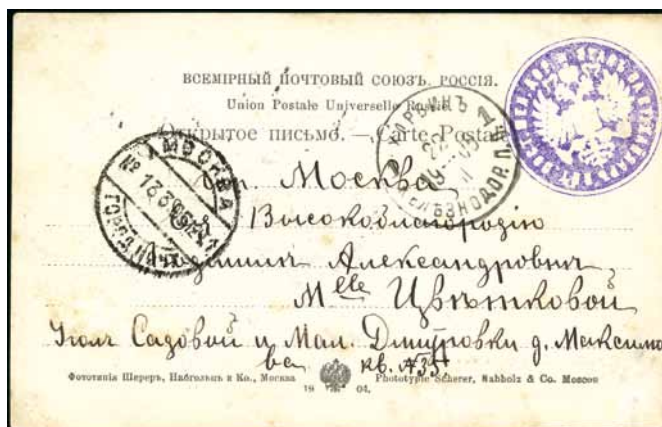 ВСЕМІРНЫЙ ПОЧТОВЫЙ СОЮЗЪ. РОССІЯ.
Union Postale Universelle Russie
Открытое письмо. — Carte Postale
ХАРБИНЪ 1
22
05
МОСКВА
№ 13 3 05
Гр. Москва
Высокоблагородію
Александровнѣ
Mlle Цвѣтковой
Уголъ Садовой и Мал. Дмитровки д. Максимо
ва кв. №35
Фототипія Шереръ, Набгольцъ и Ко., Москва
Phototypie Scherer, Nabholz & Co. Moscou
19 04.